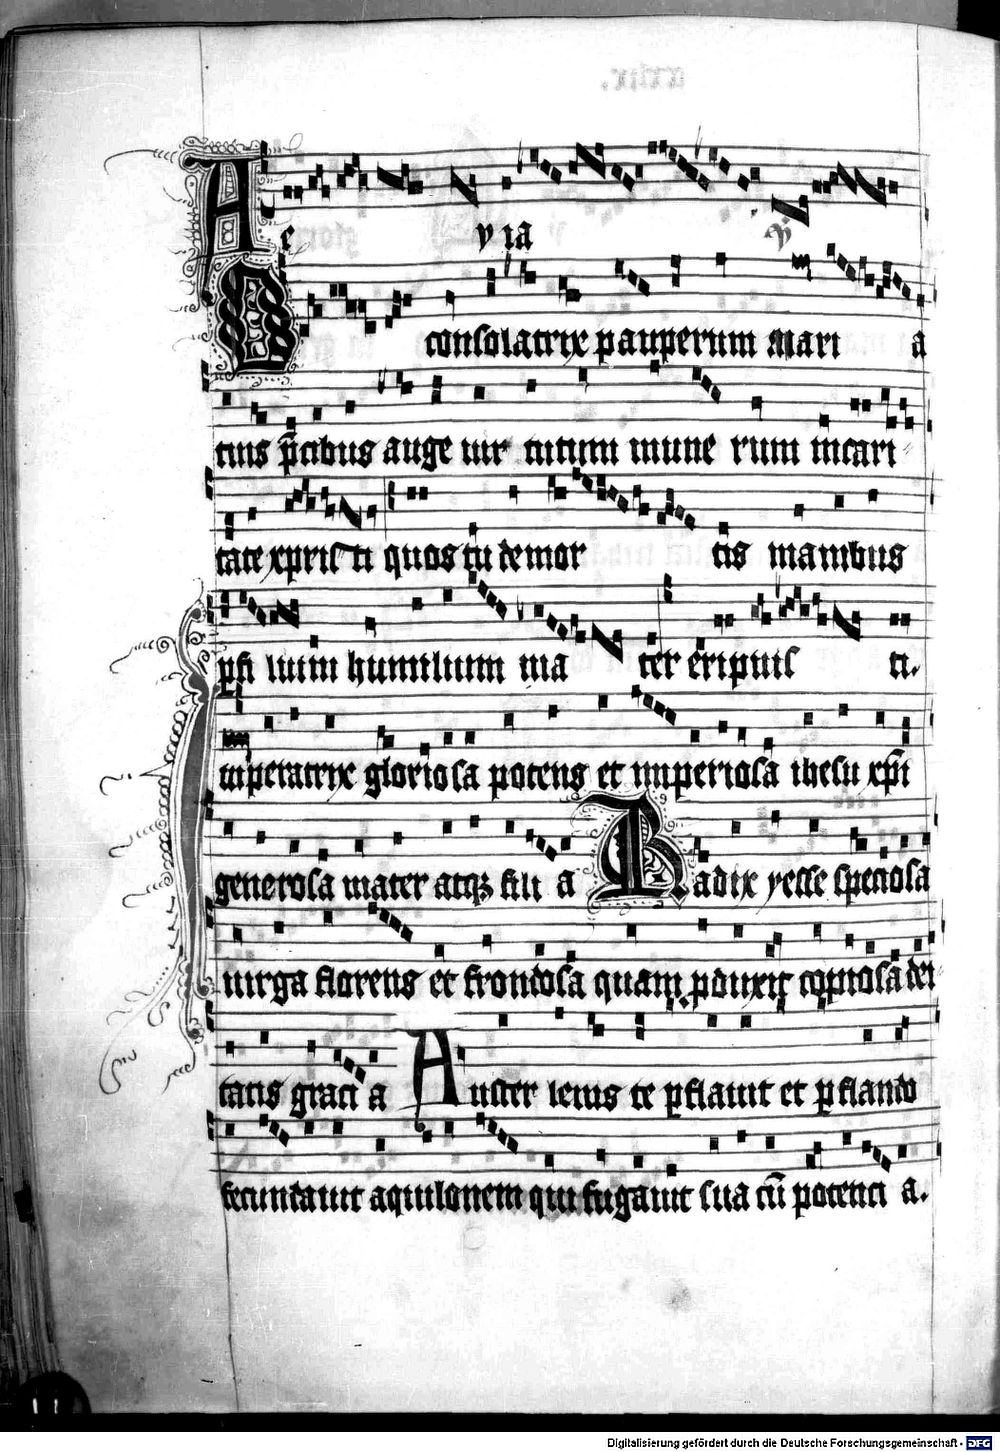 A e v ia ℣
O consolatrix pauperum mari a
tuis p̄cibus auge vir tutum mune rum in cari
tate xp̄ris ti quos tu de mor tis manibus
p̱ fi lium humilium ma ter eripuis ti.
Imperatrix gloriosa potens et imperiosa ihesu xp̄i
generosa mater atqꝫ fili a Radix yesse speciosa
virga florens et frondosa quam ꝓduxit copiosa dei
tatis graci a Auster lenis te ꝑflavit et ꝑflando
fecundavit aquilonem qui fugavit sua cū potenci a.
Digitalisierung gefördert durch die Deutsche Forschungsgemeinschaft - DFG